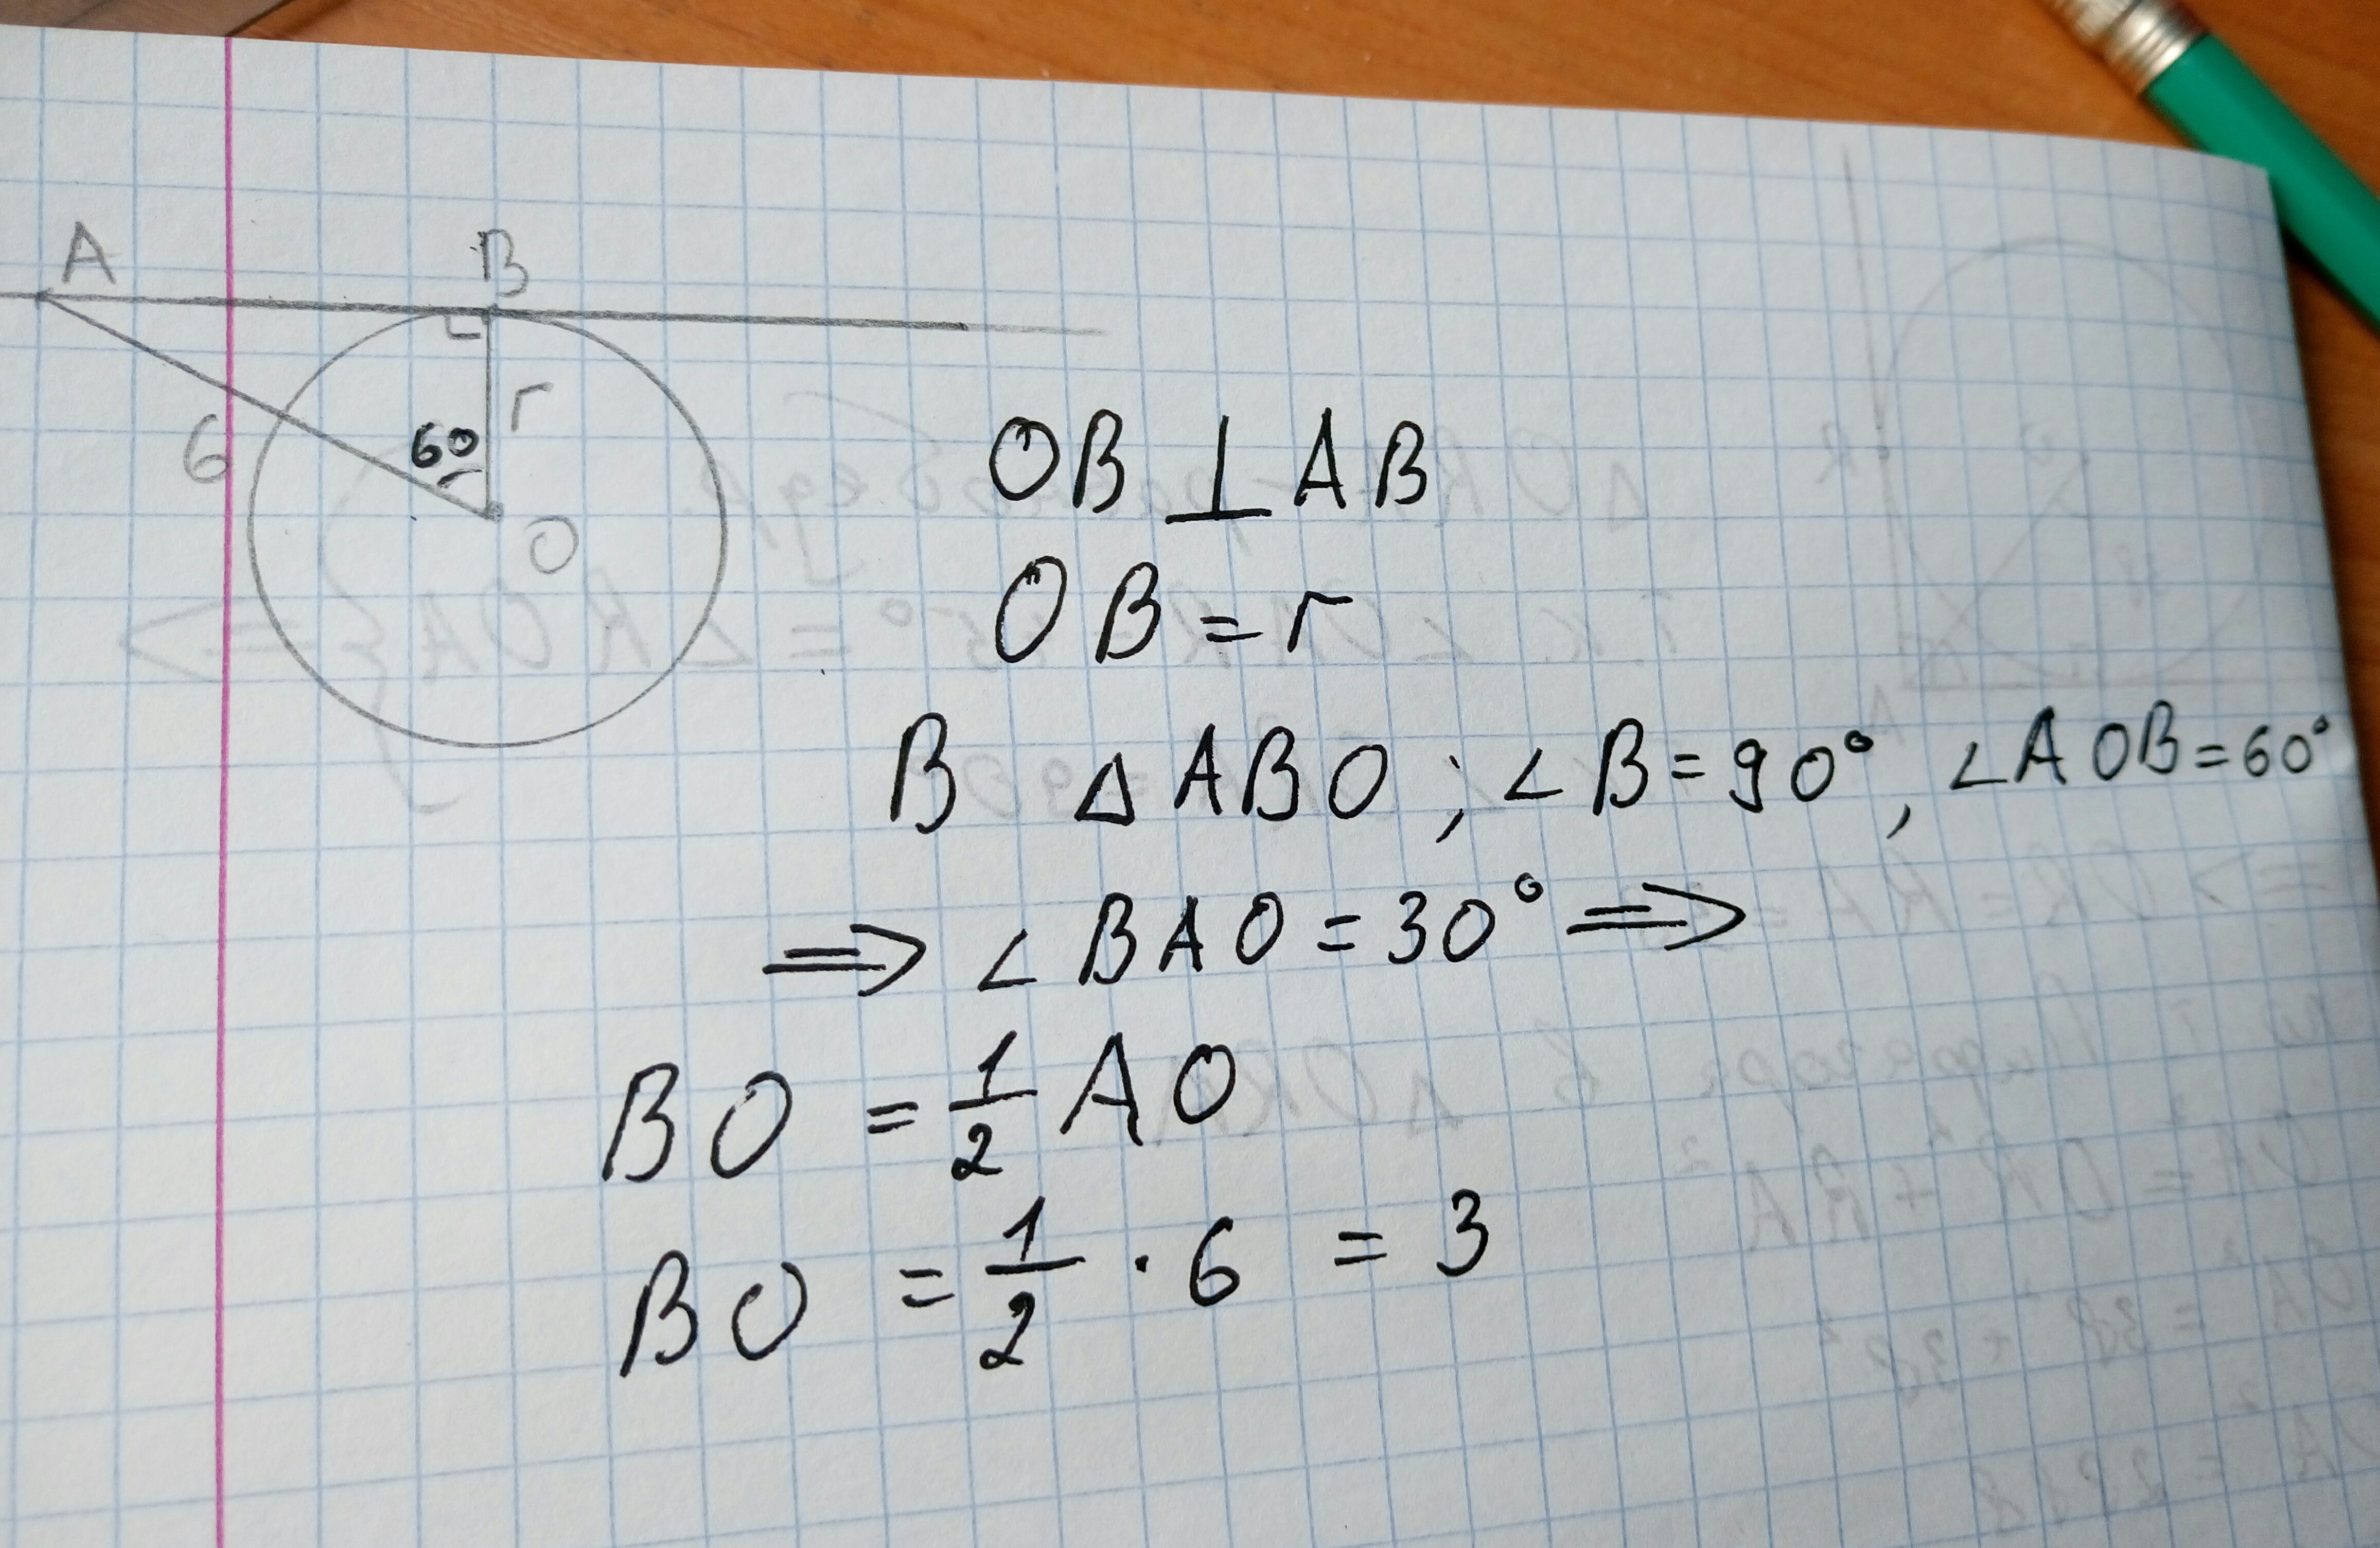 A
B
r
6
60
O
OB ⊥ AB
OB = r
В △ABO; ∠B = 90°, ∠AOB = 60°
⇒ ∠BAO = 30° ⇒
BO = 1/2 AO
BO = 1/2 · 6 = 3